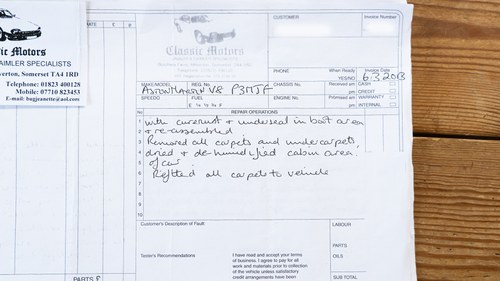 ic Motors
AIMLER SPECIALISTS
verton, Somerset TA4 1RD
Telephone: 01823 400128
Mobile: 07710 823453
E-mail: bugjeanette@aol.com
ATE
£
PARTS £
Classic Motors
CUSTOMER
Invoice Number
PHONE
When Ready
YES/NO
Invoice Date
6.3.2013
MAKE/MODEL
REG. No.
CHASSIS No.
Received am
pm
CASH
CREDIT
ASTON MARTIN V8 P3MJF
SPEEDO
FUEL
E ¼ ½ ¾ F
ENGINE No.
Promised am
pm
WARRANTY
INTERNAL
REPAIR OPERATIONS
1 with curerust & underseal in boot area
2 & re-assembled
3 Removed all carpets and undercarpets,
4 dried & de-humidified cabin area
5 of car.
6 Refitted all carpets to vehicle
7
8
9
10
Customer's Description of Fault
LABOUR
PARTS
Tester's Recommendations
I have read and accept your terms
of business. I agree to pay for all
work and materials prior to collection
of the vehicle unless satisfactory
credit arrangements have been
OIL
SUB TOTAL